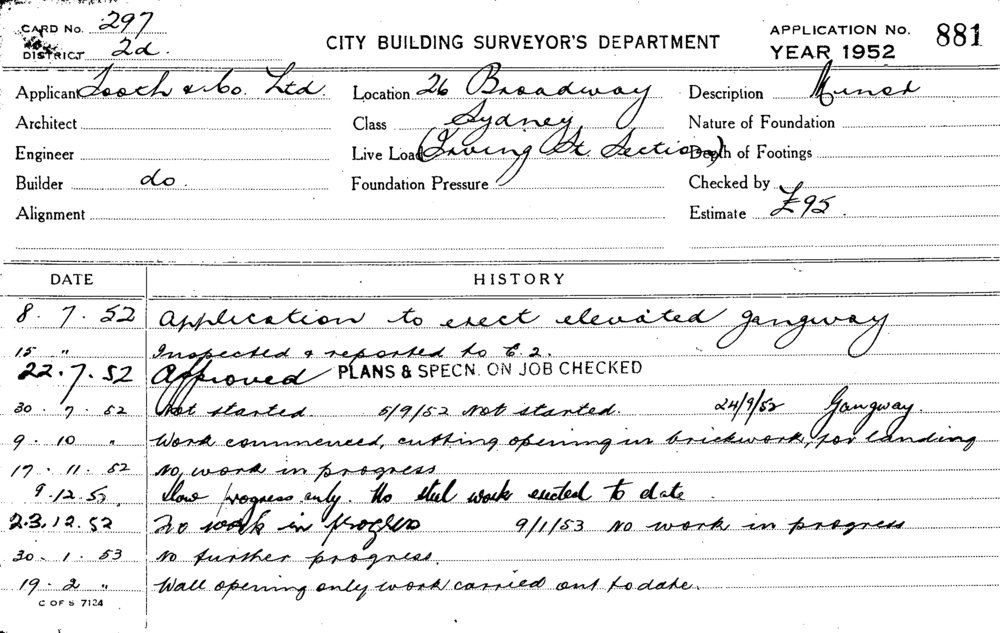 CARD No. 297
DISTRICT 2d.
CITY BUILDING SURVEYOR'S DEPARTMENT
APPLICATION No. 881
YEAR 1952
Applicant Tooth & Co. Ltd. Location 26 Broadway Description Minor
Architect Class Sydney Nature of Foundation
Engineer Live Load (Irving St. Section) Depth of Footings
Builder do. Foundation Pressure Checked by
Alignment Estimate £95.
DATE HISTORY
8. 7. 52 Application to erect elevated gangway
15 " Inspected & reported to E.2.
22.7.52 Approved PLANS & SPECN. ON JOB CHECKED
30. 7. 52 Not started. 5/9/52 Not started. 24/9/52 Gangway.
9. 10 " Work commenced, cutting opening in brickwork, for landing
17. 11. 52 No work in progress
9.12.52 Slow progress only. No steel work erected to date.
23.12.52 No work in progress 9/1/53 No work in progress
30. 1. 53 No further progress.
19. 2 " Wall opening only work carried out to date.
C OF S 7124